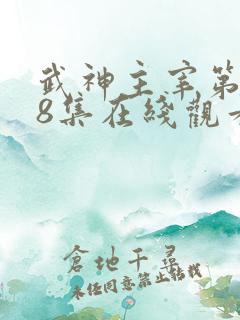 武神主宰第
8集在綫觀看
倉地千尋
未经同意禁止转载